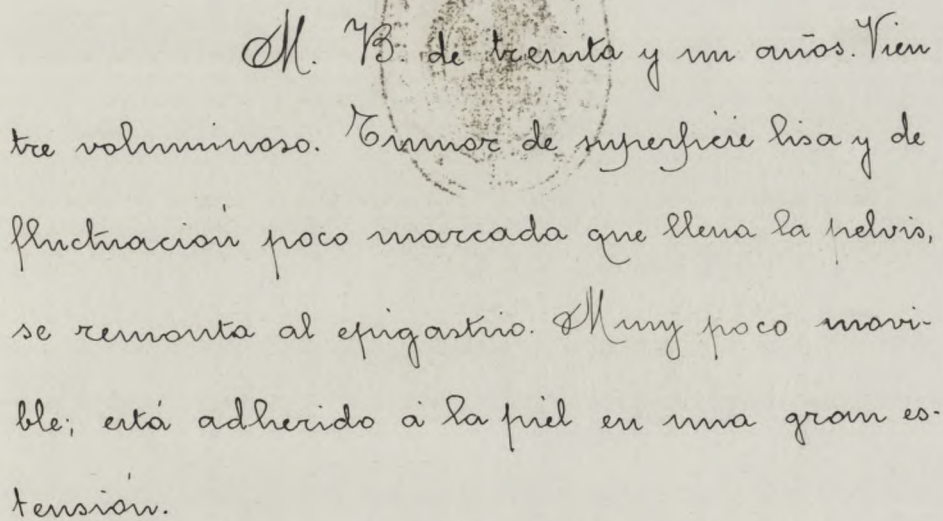 M. B. de treinta y un años. Vien
tre voluminoso. Tumor de superficie lisa y de
fluctuación poco marcada que llena la pelvis,
se remonta al epigastrio. Muy poco movi-
ble; está adherido á la piel en una gran es-
tensión.